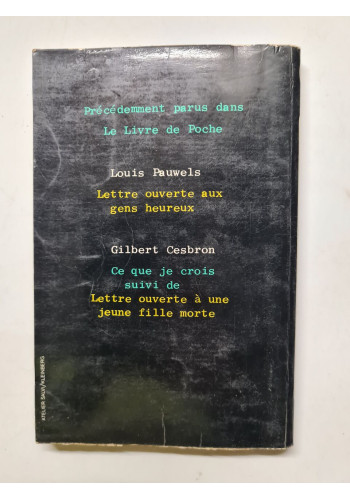 Précédemment parus dans
Le Livre de Poche
Louis Pauwels
Lettre ouverte aux
gens heureux
Gilbert Cesbron
Ce que je crois
suivi de
Lettre ouverte à une
jeune fille morte
ATELIER SALVI/KLEINBERG